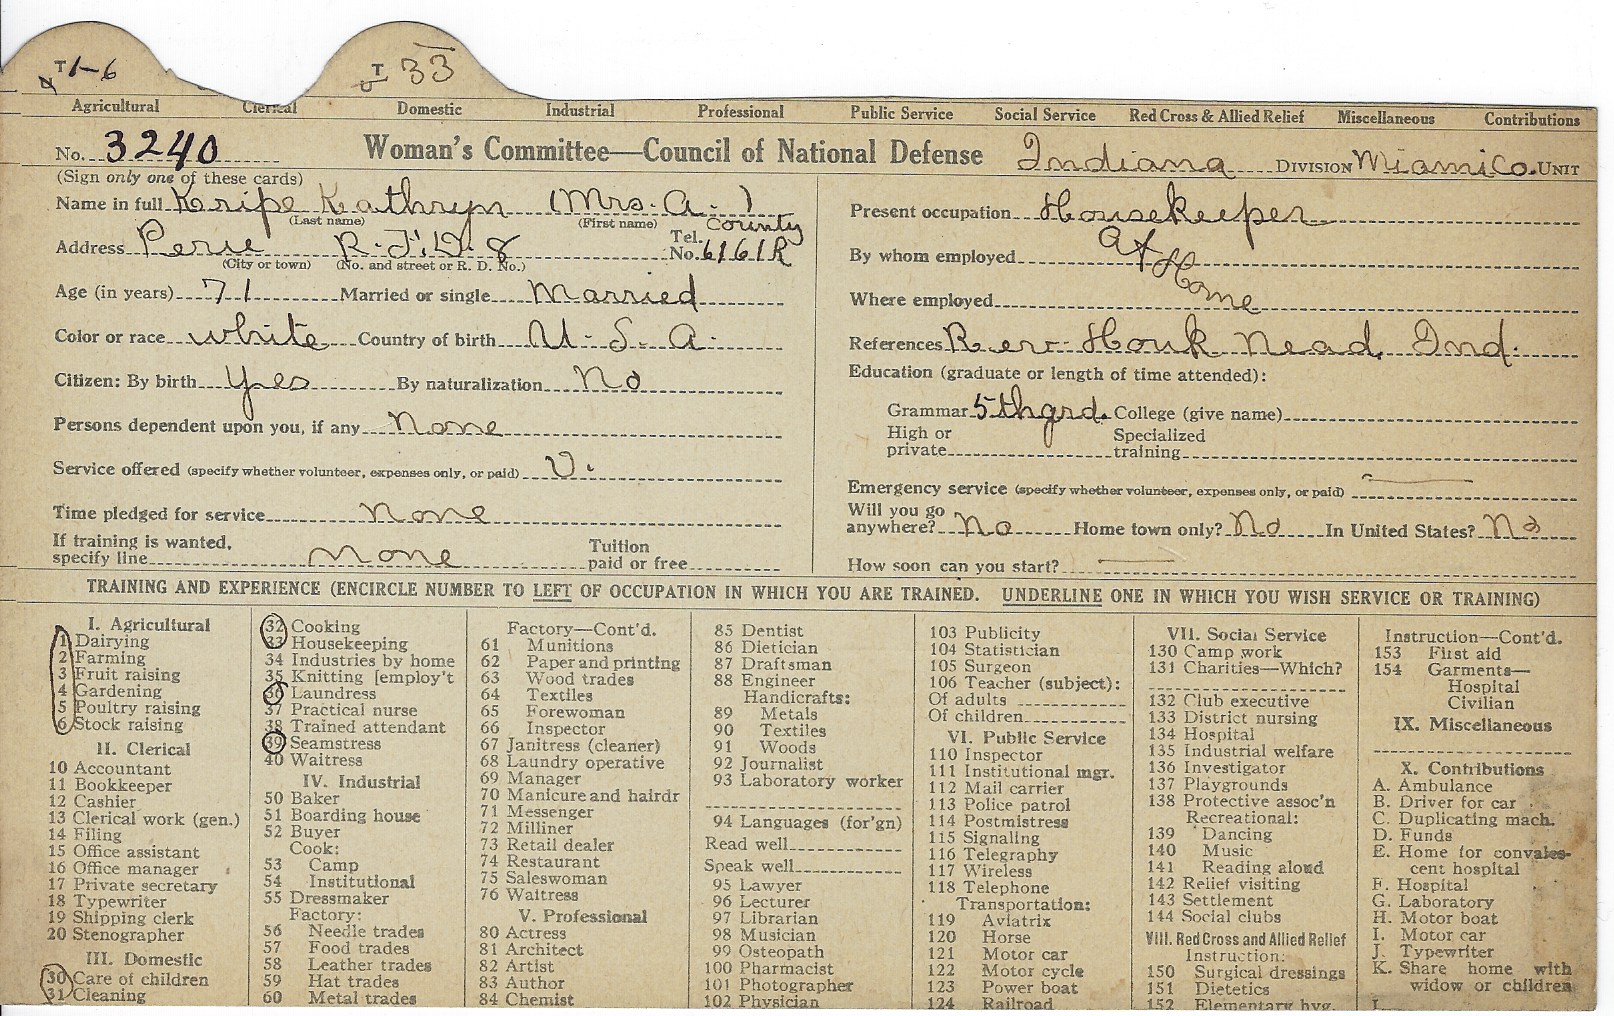 T 1-6
T 33
Agricultural Clerical Domestic Industrial Professional Public Service Social Service Red Cross & Allied Relief Miscellaneous Contributions
No. 3240 Woman's Committee—Council of National Defense Indiana DIVISION Miami Co. UNIT
(Sign only one of these cards)
Name in full Kripe Kathryn (Mrs. A.)
(Last name) (First name)
Address Peru R.F.D. 8 Tel. No. County 6161R
(City or town) (No. and street or R. D. No.)
Age (in years) 71 Married or single Married
Color or race white Country of birth U.S.A.
Citizen: By birth yes By naturalization No
Persons dependent upon you, if any None
Service offered (specify whether volunteer, expenses only, or paid) V.
Time pledged for service none
If training is wanted, specify line none Tuition paid or free
Present occupation Housekeeper
By whom employed At
Where employed Home
References Rev. Houk Mead, Ind.
Education (graduate or length of time attended):
Grammar 5th grd. College (give name)
High or private Specialized training
Emergency service (specify whether volunteer, expenses only, or paid)
Will you go anywhere? No Home town only? No In United States? No
How soon can you start?
TRAINING AND EXPERIENCE (ENCIRCLE NUMBER TO LEFT OF OCCUPATION IN WHICH YOU ARE TRAINED. UNDERLINE ONE IN WHICH YOU WISH SERVICE OR TRAINING)
I. Agricultural
1 Dairying
2 Farming
3 Fruit raising
4 Gardening
5 Poultry raising
6 Stock raising
II. Clerical
10 Accountant
11 Bookkeeper
12 Cashier
13 Clerical work (gen.)
14 Filing
15 Office assistant
16 Office manager
17 Private secretary
18 Typewriter
19 Shipping clerk
20 Stenographer
III. Domestic
30 Care of children
31 Cleaning
32 Cooking
33 Housekeeping
34 Industries by home
35 Knitting [employ't
36 Laundress
37 Practical nurse
38 Trained attendant
39 Seamstress
40 Waitress
IV. Industrial
50 Baker
51 Boarding house
52 Buyer
Cook:
53 Camp
54 Institutional
55 Dressmaker
Factory:
56 Needle trades
57 Food trades
58 Leather trades
59 Hat trades
60 Metal trades
Factory—Cont'd.
61 Munitions
62 Paper and printing
63 Wood trades
64 Textiles
65 Forewoman
66 Inspector
67 Janitress (cleaner)
68 Laundry operative
69 Manager
70 Manicure and hairdr
71 Messenger
72 Milliner
73 Retail dealer
74 Restaurant
75 Saleswoman
76 Waitress
V. Professional
80 Actress
81 Architect
82 Artist
83 Author
84 Chemist
85 Dentist
86 Dietician
87 Draftsman
88 Engineer
Handicrafts:
89 Metals
90 Textiles
91 Woods
92 Journalist
93 Laboratory worker
94 Languages (for'gn)
Read well
Speak well
95 Lawyer
96 Lecturer
97 Librarian
98 Musician
99 Osteopath
100 Pharmacist
101 Photographer
102 Physician
103 Publicity
104 Statistician
105 Surgeon
106 Teacher (subject):
Of adults
Of children
VI. Public Service
110 Inspector
111 Institutional mgr.
112 Mail carrier
113 Police patrol
114 Postmistress
115 Signaling
116 Telegraphy
117 Wireless
118 Telephone
Transportation:
119 Aviatrix
120 Horse
121 Motor car
122 Motor cycle
123 Power boat
124 Railroad
VII. Social Service
130 Camp work
131 Charities—Which?
132 Club executive
133 District nursing
134 Hospital
135 Industrial welfare
136 Investigator
137 Playgrounds
138 Protective assoc'n
Recreational:
139 Dancing
140 Music
141 Reading aloud
142 Relief visiting
143 Settlement
144 Social clubs
VIII. Red Cross and Allied Relief
Instruction:
150 Surgical dressings
151 Dietetics
152 Elementary hyg.
Instruction—Cont'd.
153 First aid
154 Garments—
Hospital
Civilian
IX. Miscellaneous
X. Contributions
A. Ambulance
B. Driver for car
C. Duplicating mach.
D. Funds
E. Home for convales-
cent hospital
F. Hospital
G. Laboratory
H. Motor boat
I. Motor car
J. Typewriter
K. Share home with
widow or children
L.